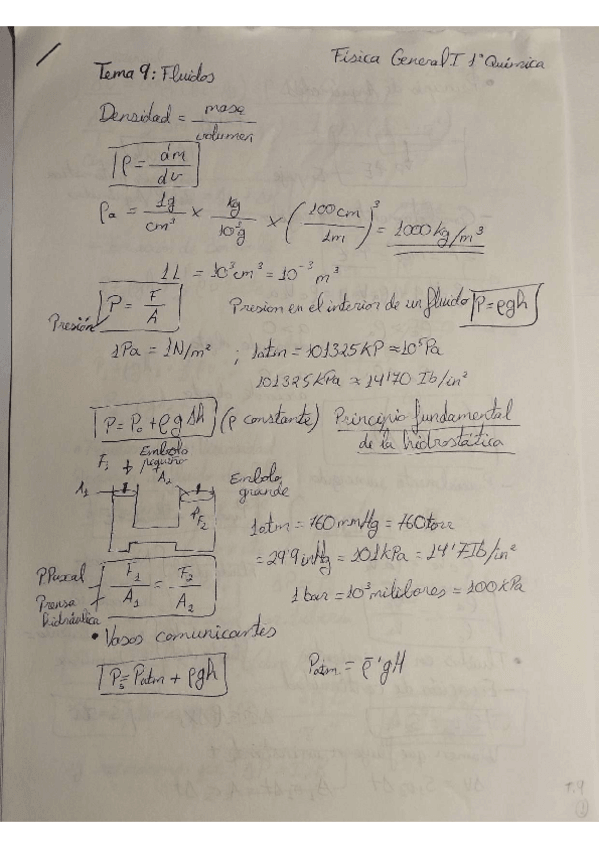 Física General I 1º Química
Tema 9: Fluidos
Densidad = masa / volumen
ρ = dm / dv
ρa = 1g / cm³ × kg / 10³g × (100cm / 1m)³ = 1000 kg/m³
1L = 10³cm³ = 10⁻³ m³
Presión P = F / A Presion en el interior de un fluido P = ρgh
1Pa = 1N/m² ; 1atm = 101325KP ≈ 10⁵Pa
101325KPa ≈ 14'70 Ib/in²
P = P₀ + ρgΔh (ρ constante) Principio fundamental
de la hidrostática
F₁ Embolo pequeño
A₁ A₂ Embolo grande
F₂
1atm = 760mmHg = 760torr
= 29'9 inHg = 101kPa = 14'7Ib/in²
P.Pascal F₁ / A₁ = F₂ / A₂
Prensa hidráulica
1 bar = 10³ milibares = 100KPa
• Vasos comunicantes
P₅ = Patm + ρgh Patm = ρ'gH
T.9
①